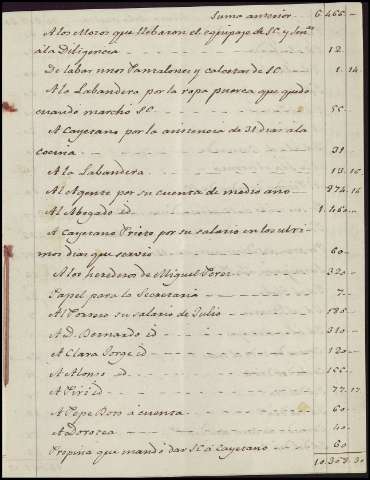 Suma anterior - 6.466 -
A los Mozos que llebaron el equipaje de SC y Sen.as
a la Diligencia - 12.
De labar unos Pantalones y calcetas de SC - 1. 14
A la Labandera por la ropa puerca que quedo
cuando marcho SC - 55 -
A Cayetano por la asistencia de 31 dias a la
cocina - 31 -
A la Labandera - 19. 16
Al Agente por su cuenta de medio año - 874. 16
Al Abogado id - 1.460 -
A Cayetano Prieto por su salario en los ulti-
mos dias que servio - 60 -
A los herederos de Miguel Perez - 320 -
Papel para la Secretaria - 7 -
Al Portero su salario de Julio -
A D. Bernardo id - 310 -
A Clara Jorge id - 120 -
A Alonso id -
A Piri id - 77. 17
A Pepe Boro a cuenta - 60 -
A Dorotea - 40 -
Propina que mandó dar SC a Cayetano - 60
10.358. 30